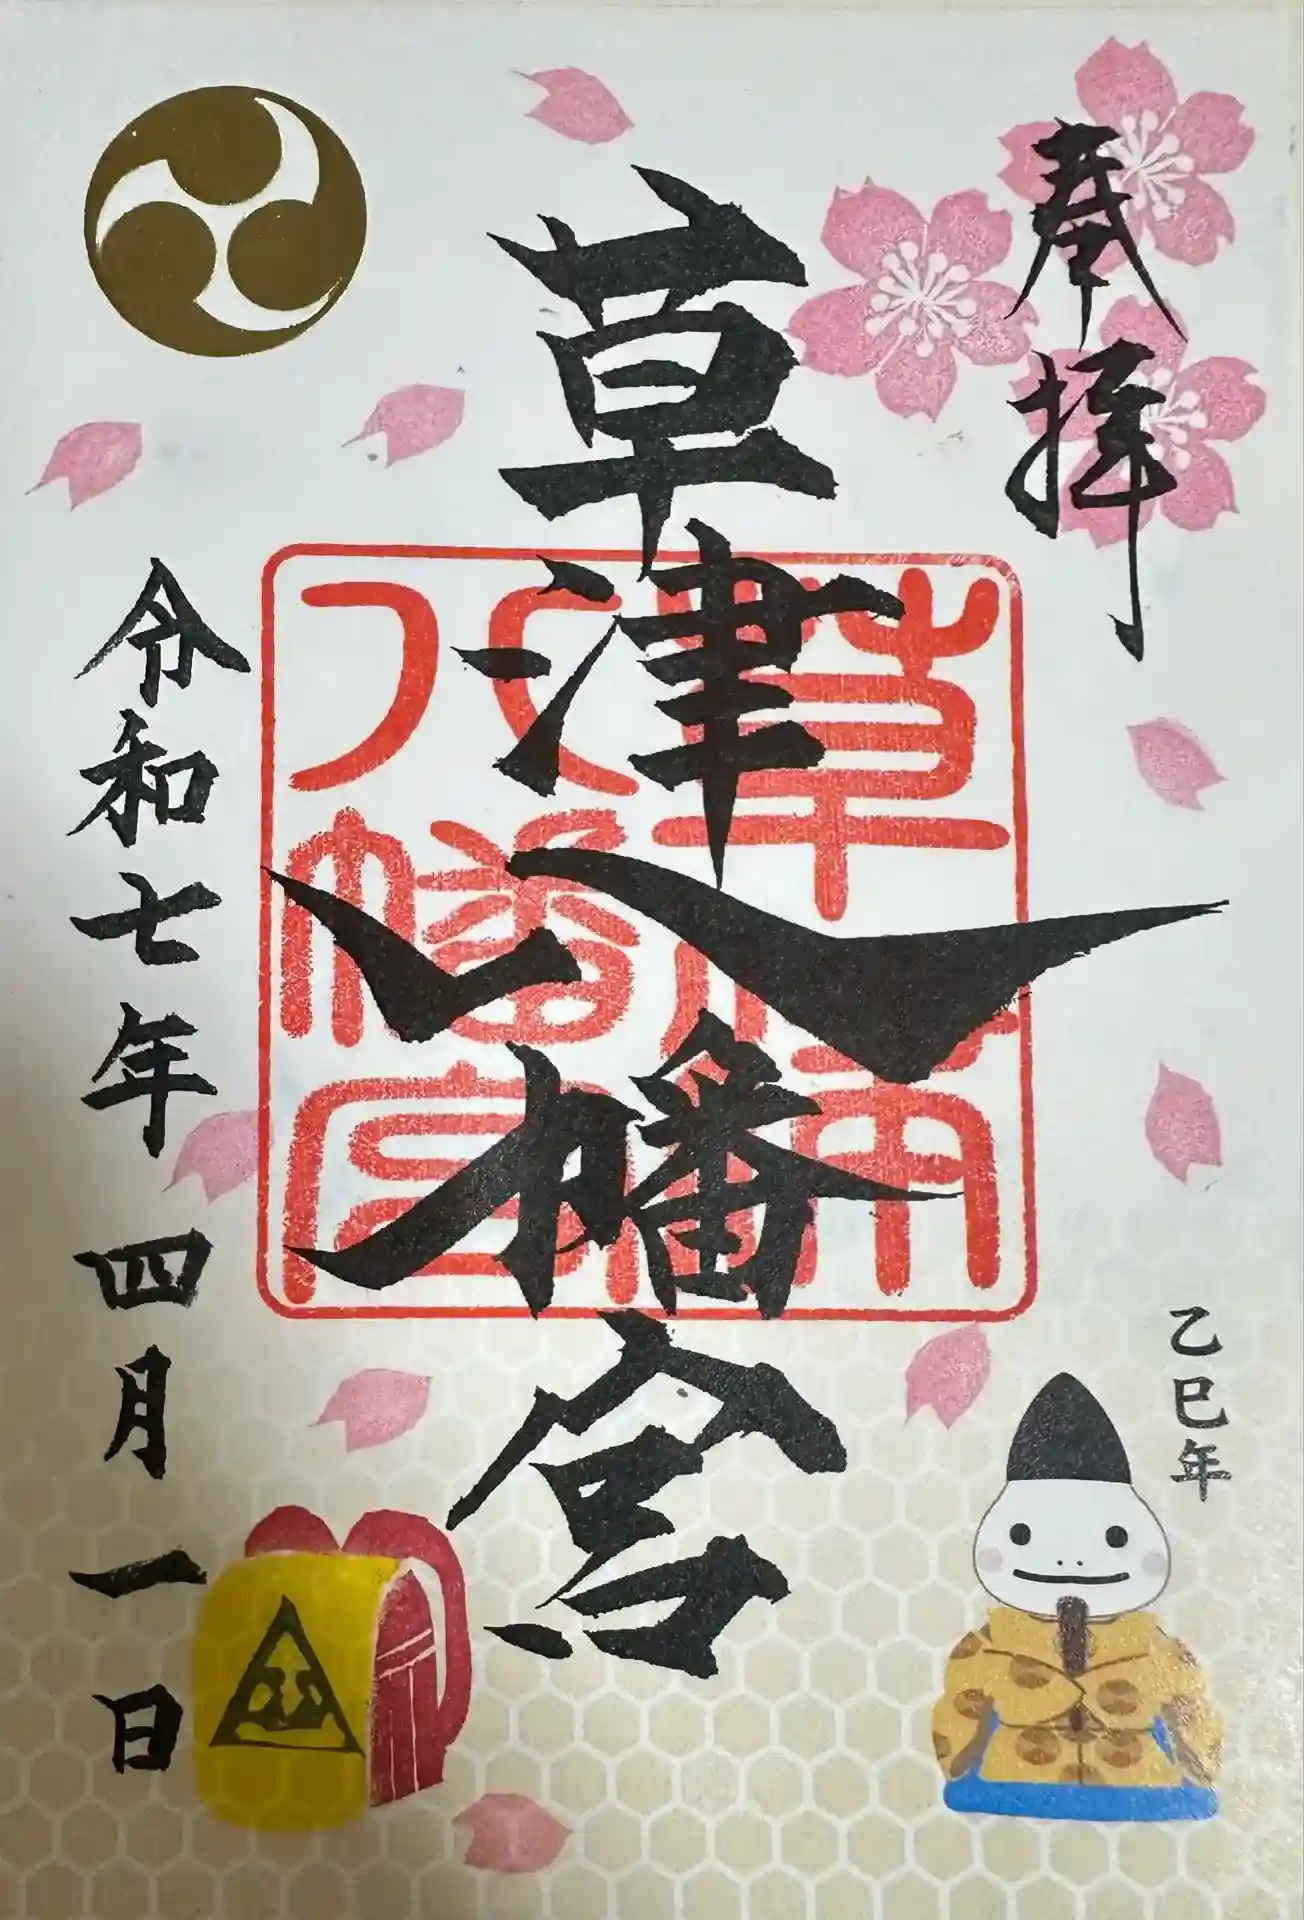 奉拝
乙巳年
草津八幡宮
草津八幡宮
令和七年四月一日